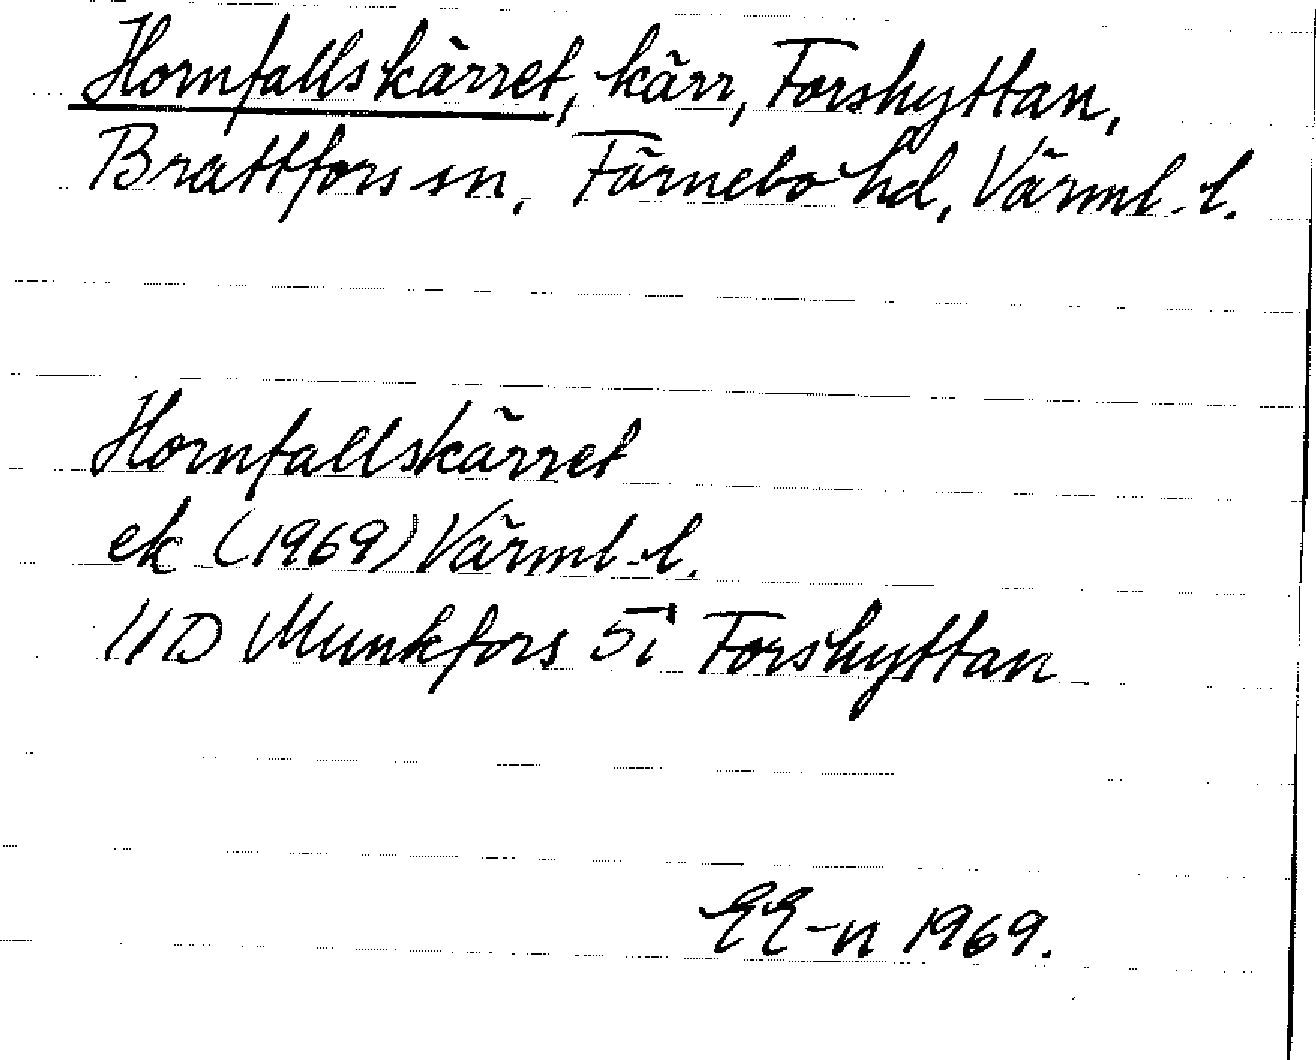 Hornfallskärret, kärr, Forshyttan,
Brattfors sn, Färnebo hd, Värml. l.
Hornfallskärret
ek (1969) Värml. l.
11D Munkfors 5i Forshyttan
EE-n 1969.